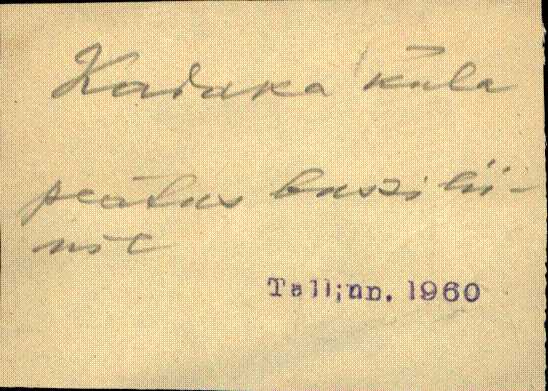 Kadaka küla
peatus bussilii-
nil
Tallinn. 1960